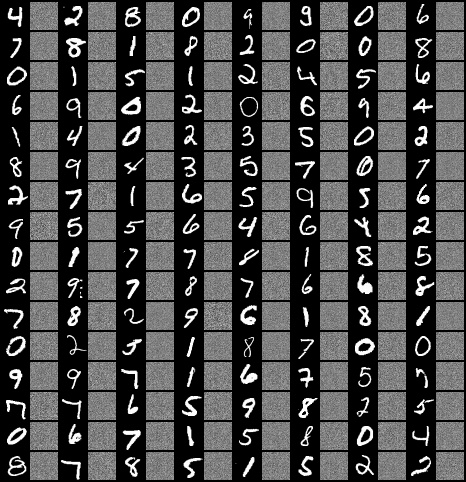 4 2 8 0 9 9 0 6
7 8 1 8 2 0 0 8
0 1 5 1 2 4 5 6
6 9 0 2 0 6 9 4
1 4 0 2 3 5 0 2
8 9 4 3 5 7 0 7
2 7 1 6 5 9 5 6
9 5 5 6 4 6 4 2
0 1 7 7 8 1 8 5
2 9 7 8 7 6 6 8
7 8 2 9 6 1 8 1
0 2 5 1 8 7 0 0
9 9 7 1 6 7 5 7
7 7 6 5 9 8 2 5
0 6 7 1 5 8 0 4
8 7 8 5 1 5 2 2